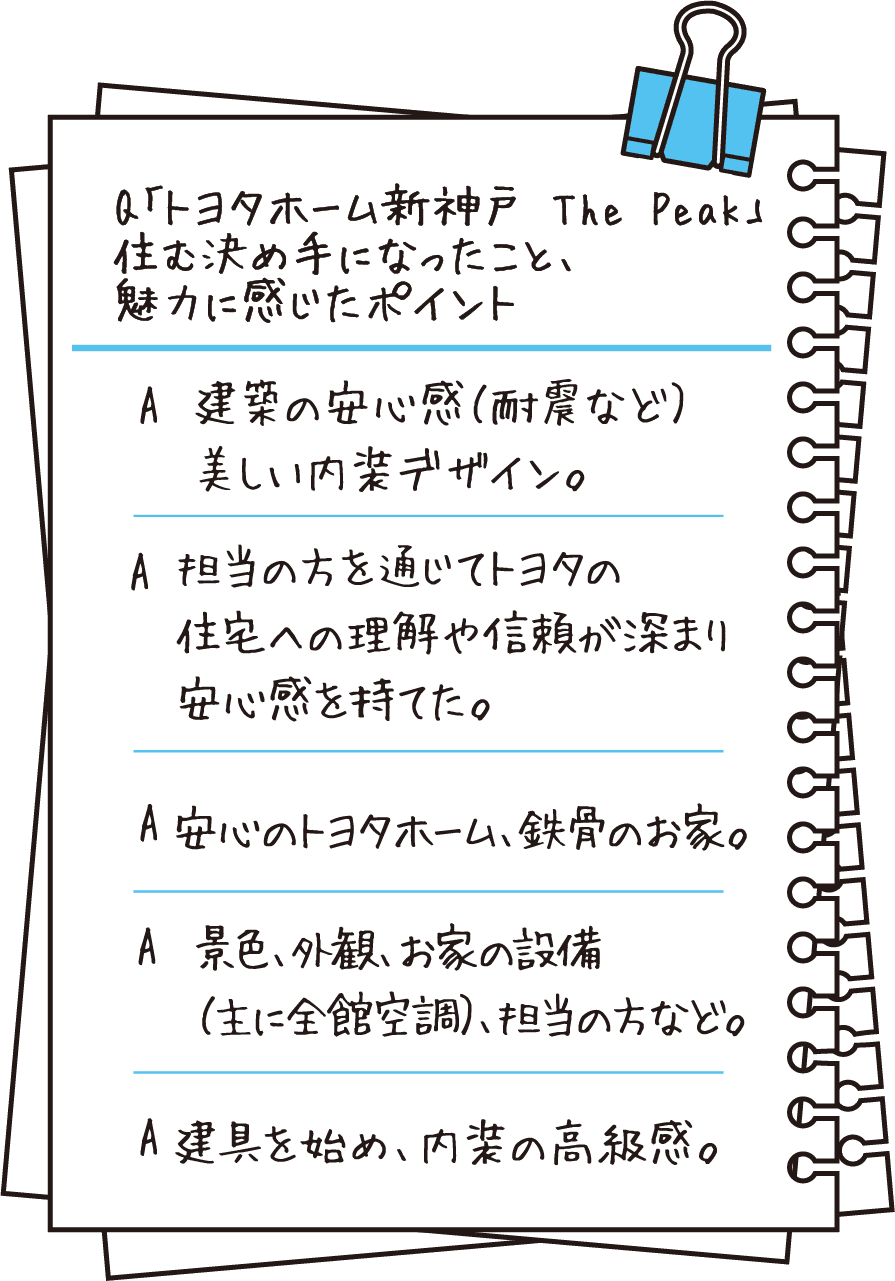 Q「トヨタホーム新神戸 The Peak」
住む決め手になったこと、
魅力に感じたポイント
A 建築の安心感(耐震など)
美しい内装デザイン。
A 担当の方を通じてトヨタの
住宅への理解や信頼が深まり
安心感を持てた。
A 安心のトヨタホーム、鉄骨のお家。
A 景色、外観、お家の設備
(主に全館空調)、担当の方など。
A 建具を始め、内装の高級感。